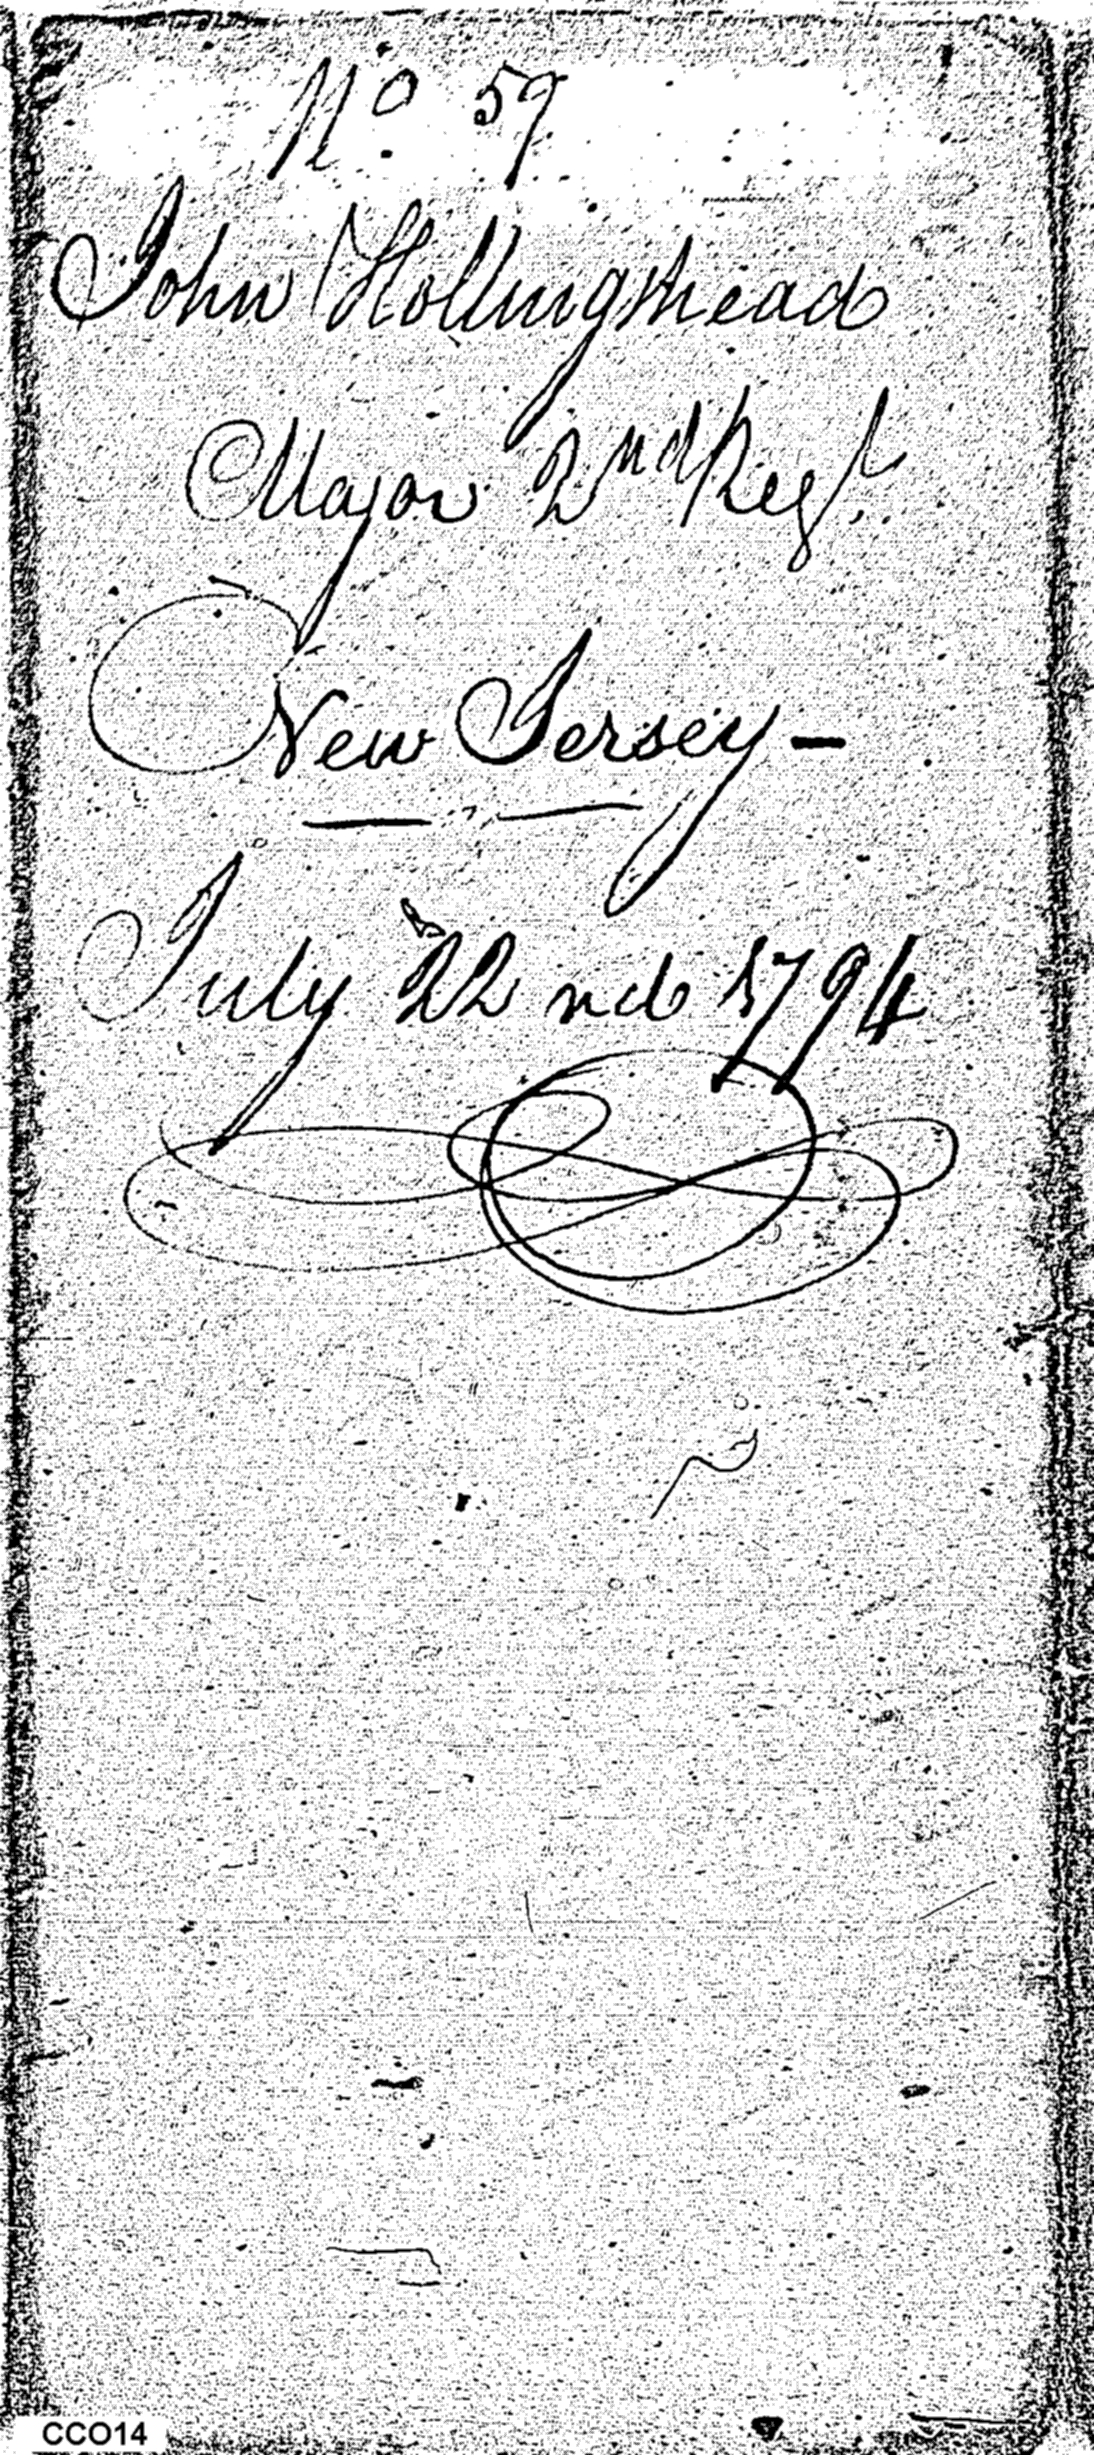 No. 59
John Hollingshead
Major 2nd Regt.
New Jersey -
July 22nd 1794
CCO14